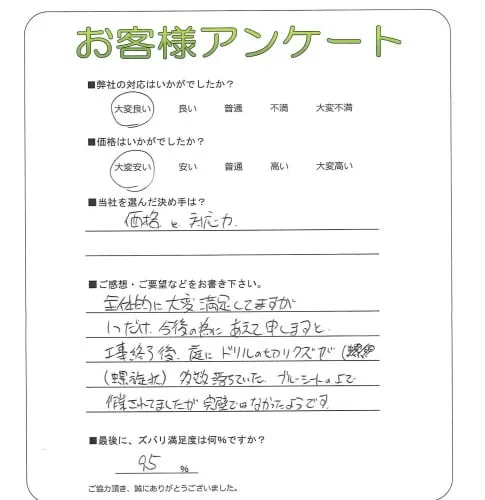 お客様アンケート
■弊社の対応はいかがでしたか?
大変良い 良い 普通 不満 大変不満
■価格はいかがでしたか?
大変安い 安い 普通 高い 大変高い
■当社を選んだ決め手は?
価格と対応力
■ご感想・ご要望などをお書き下さい。
全体的に大変満足してますが
1つだけ、今後の為にあえて申しますと、
工事終了後、庭にドリルの切リクズが
(螺旋状)多数落ちていた。ブルーシートの上で
作業されてましたが完璧ではなかったようです。
■最後に、ズバリ満足度は何%ですか?
95 %
ご協力頂き、誠にありがとうございました。